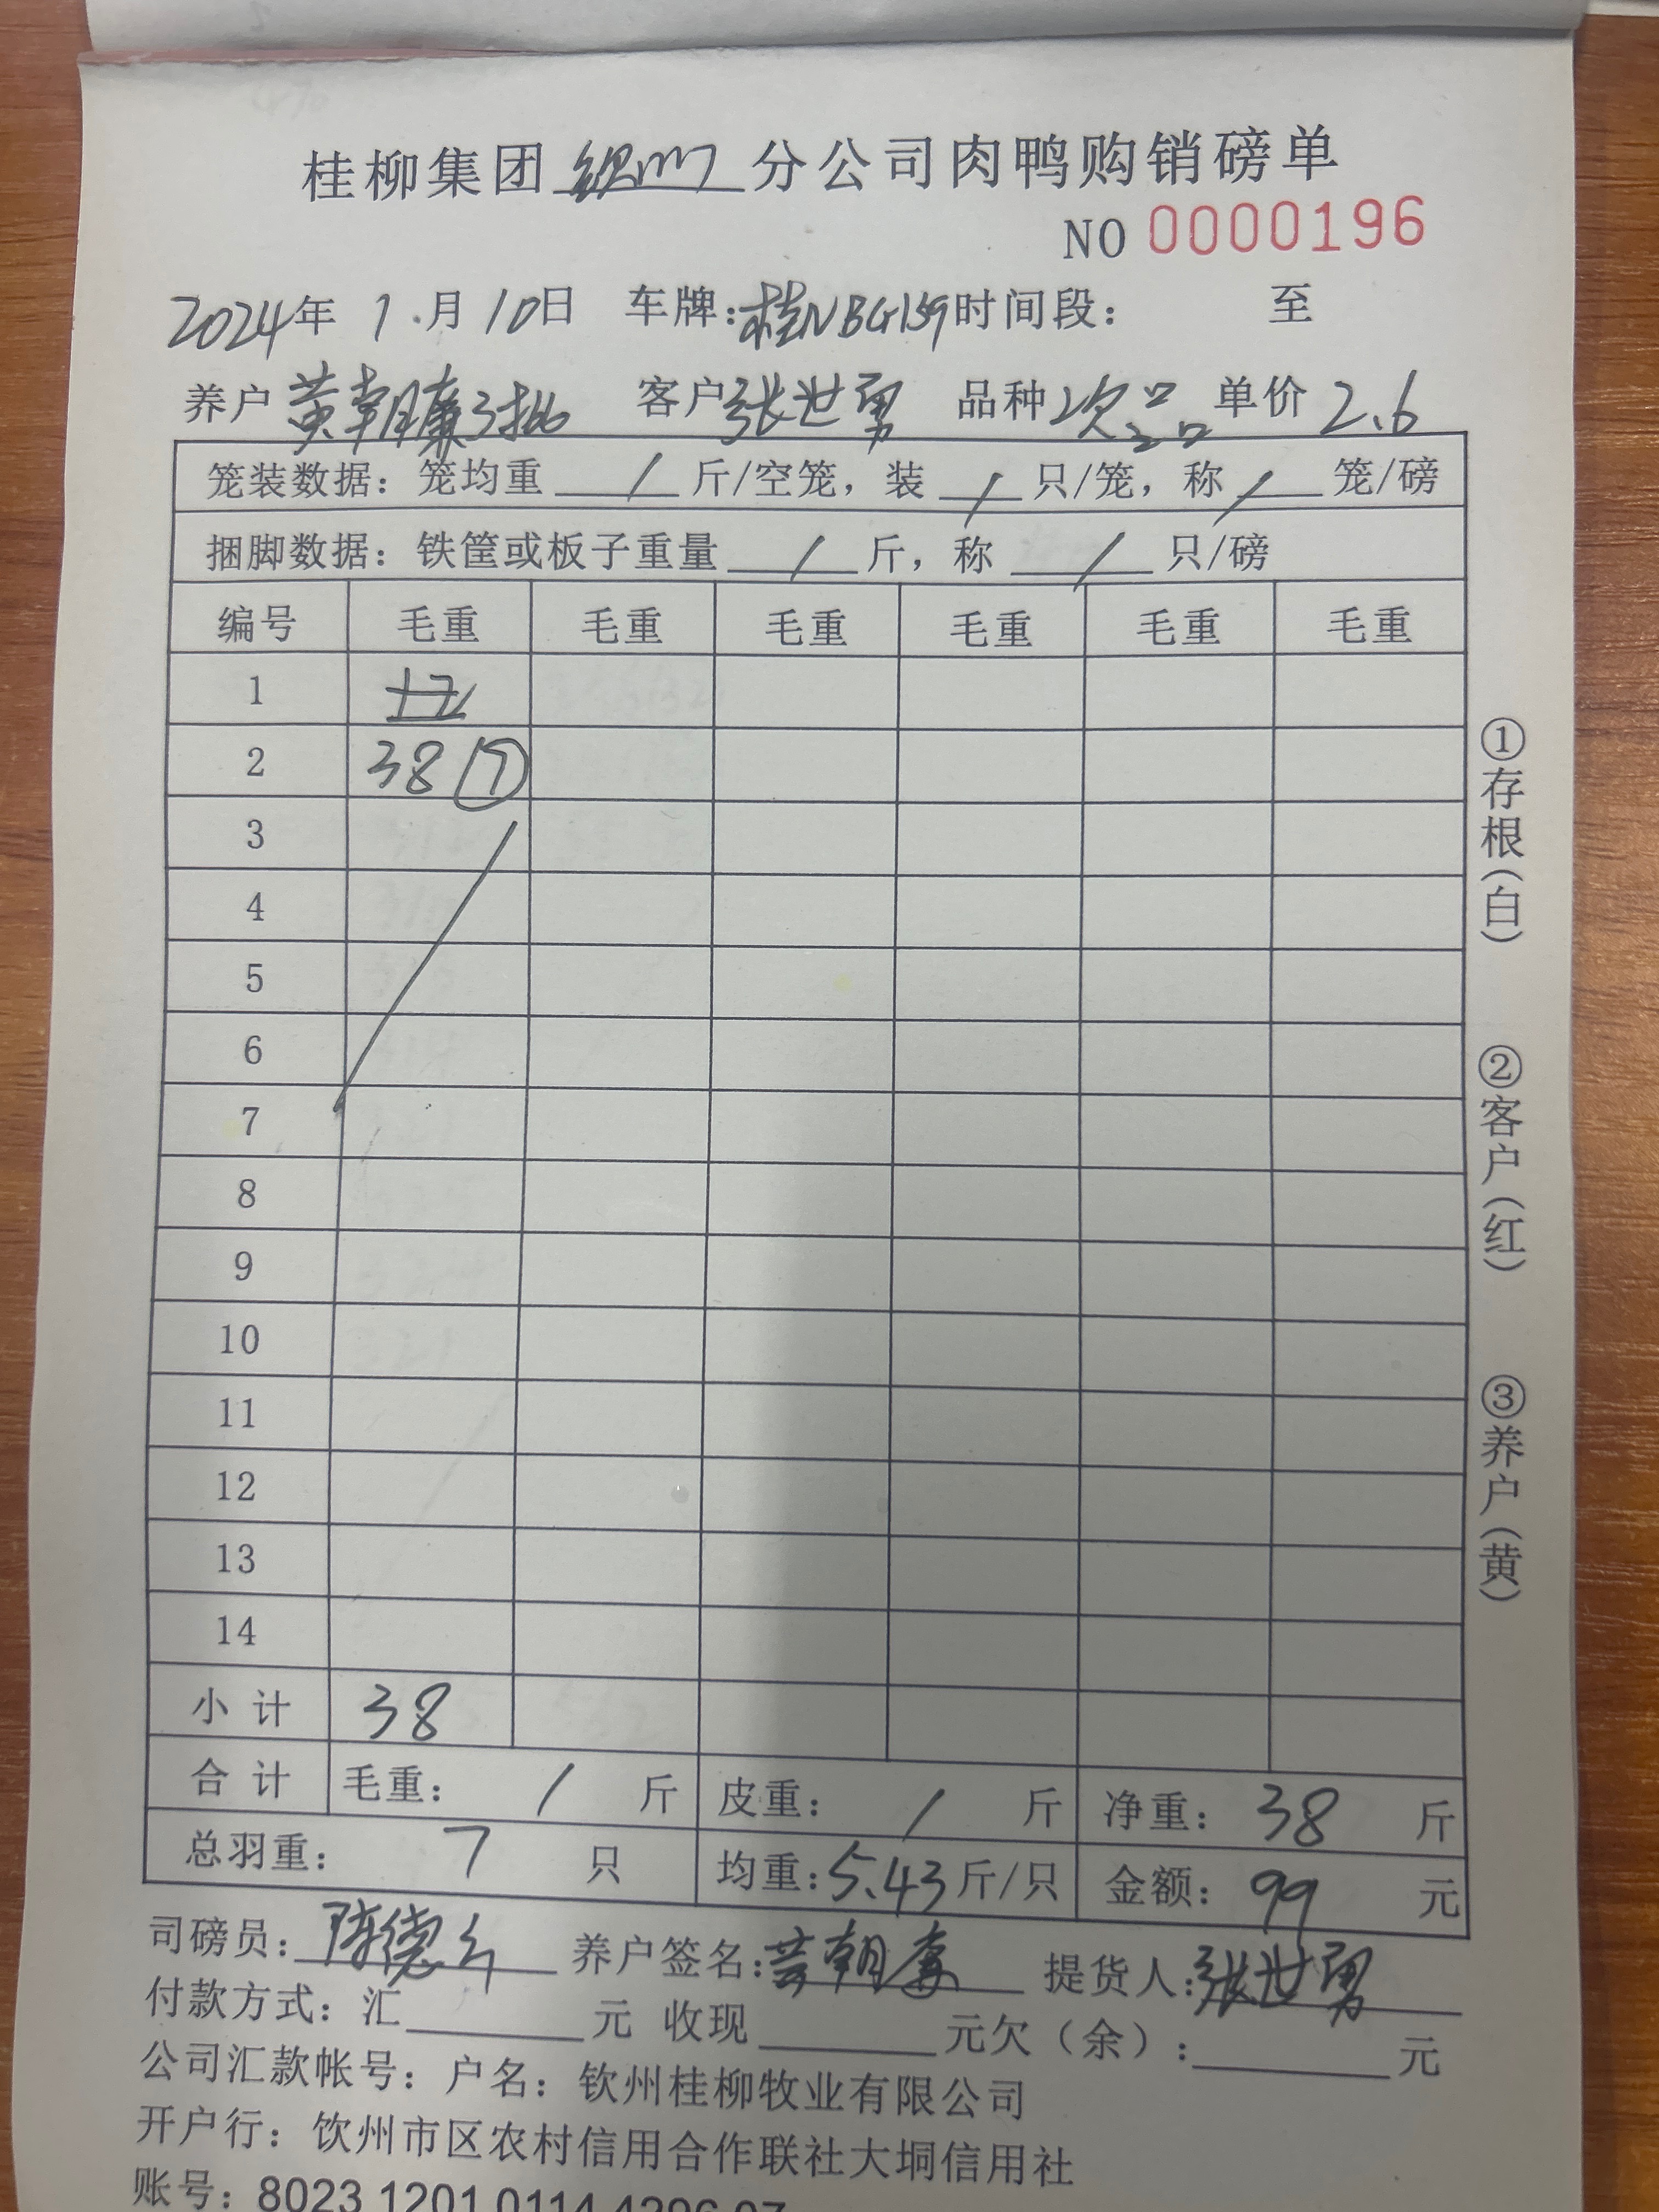 桂柳集团钦州分公司肉鸭购销磅单
NO 0000196
2024年 1月10日 车牌:桂NBG159时间段: 至
养户黄朝廉3批 客户张世勇 品种次品 单价2.6
笼装数据:笼均重 / 斤/空笼,装 / 只/笼,称 / 笼/磅
捆脚数据:铁筐或板子重量 / 斤,称 / 只/磅
编号 毛重 毛重 毛重 毛重 毛重 毛重
1
2 38 ⑦
3
4
5
6
7
8
9
10
11
12
13
14
小计 38
合计 毛重: / 斤 皮重: / 斤 净重: 38 斤
总羽重: 7 只 均重:5.43斤/只 金额: 99 元
司磅员:陈德 养户签名:黄朝廉 提货人:张世勇
付款方式:汇 元 收现 元欠(余): 元
公司汇款帐号:户名:钦州桂柳牧业有限公司
开户行:饮州市区农村信用合作联社大垌信用社
账号:8023 1201 0114 4296 07
①存根(白)
②客户(红)
③养户(黄)